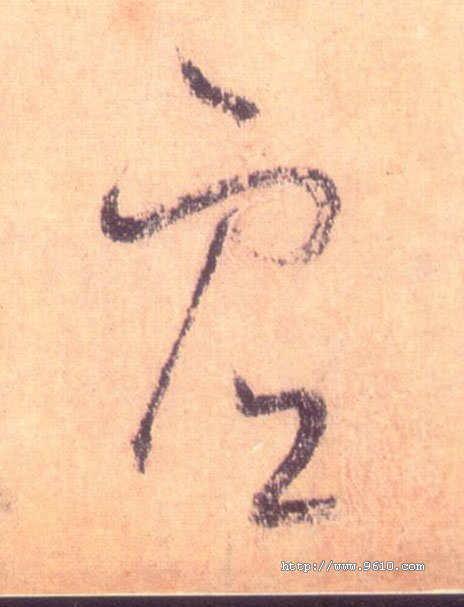 虚
http://www.9610.com